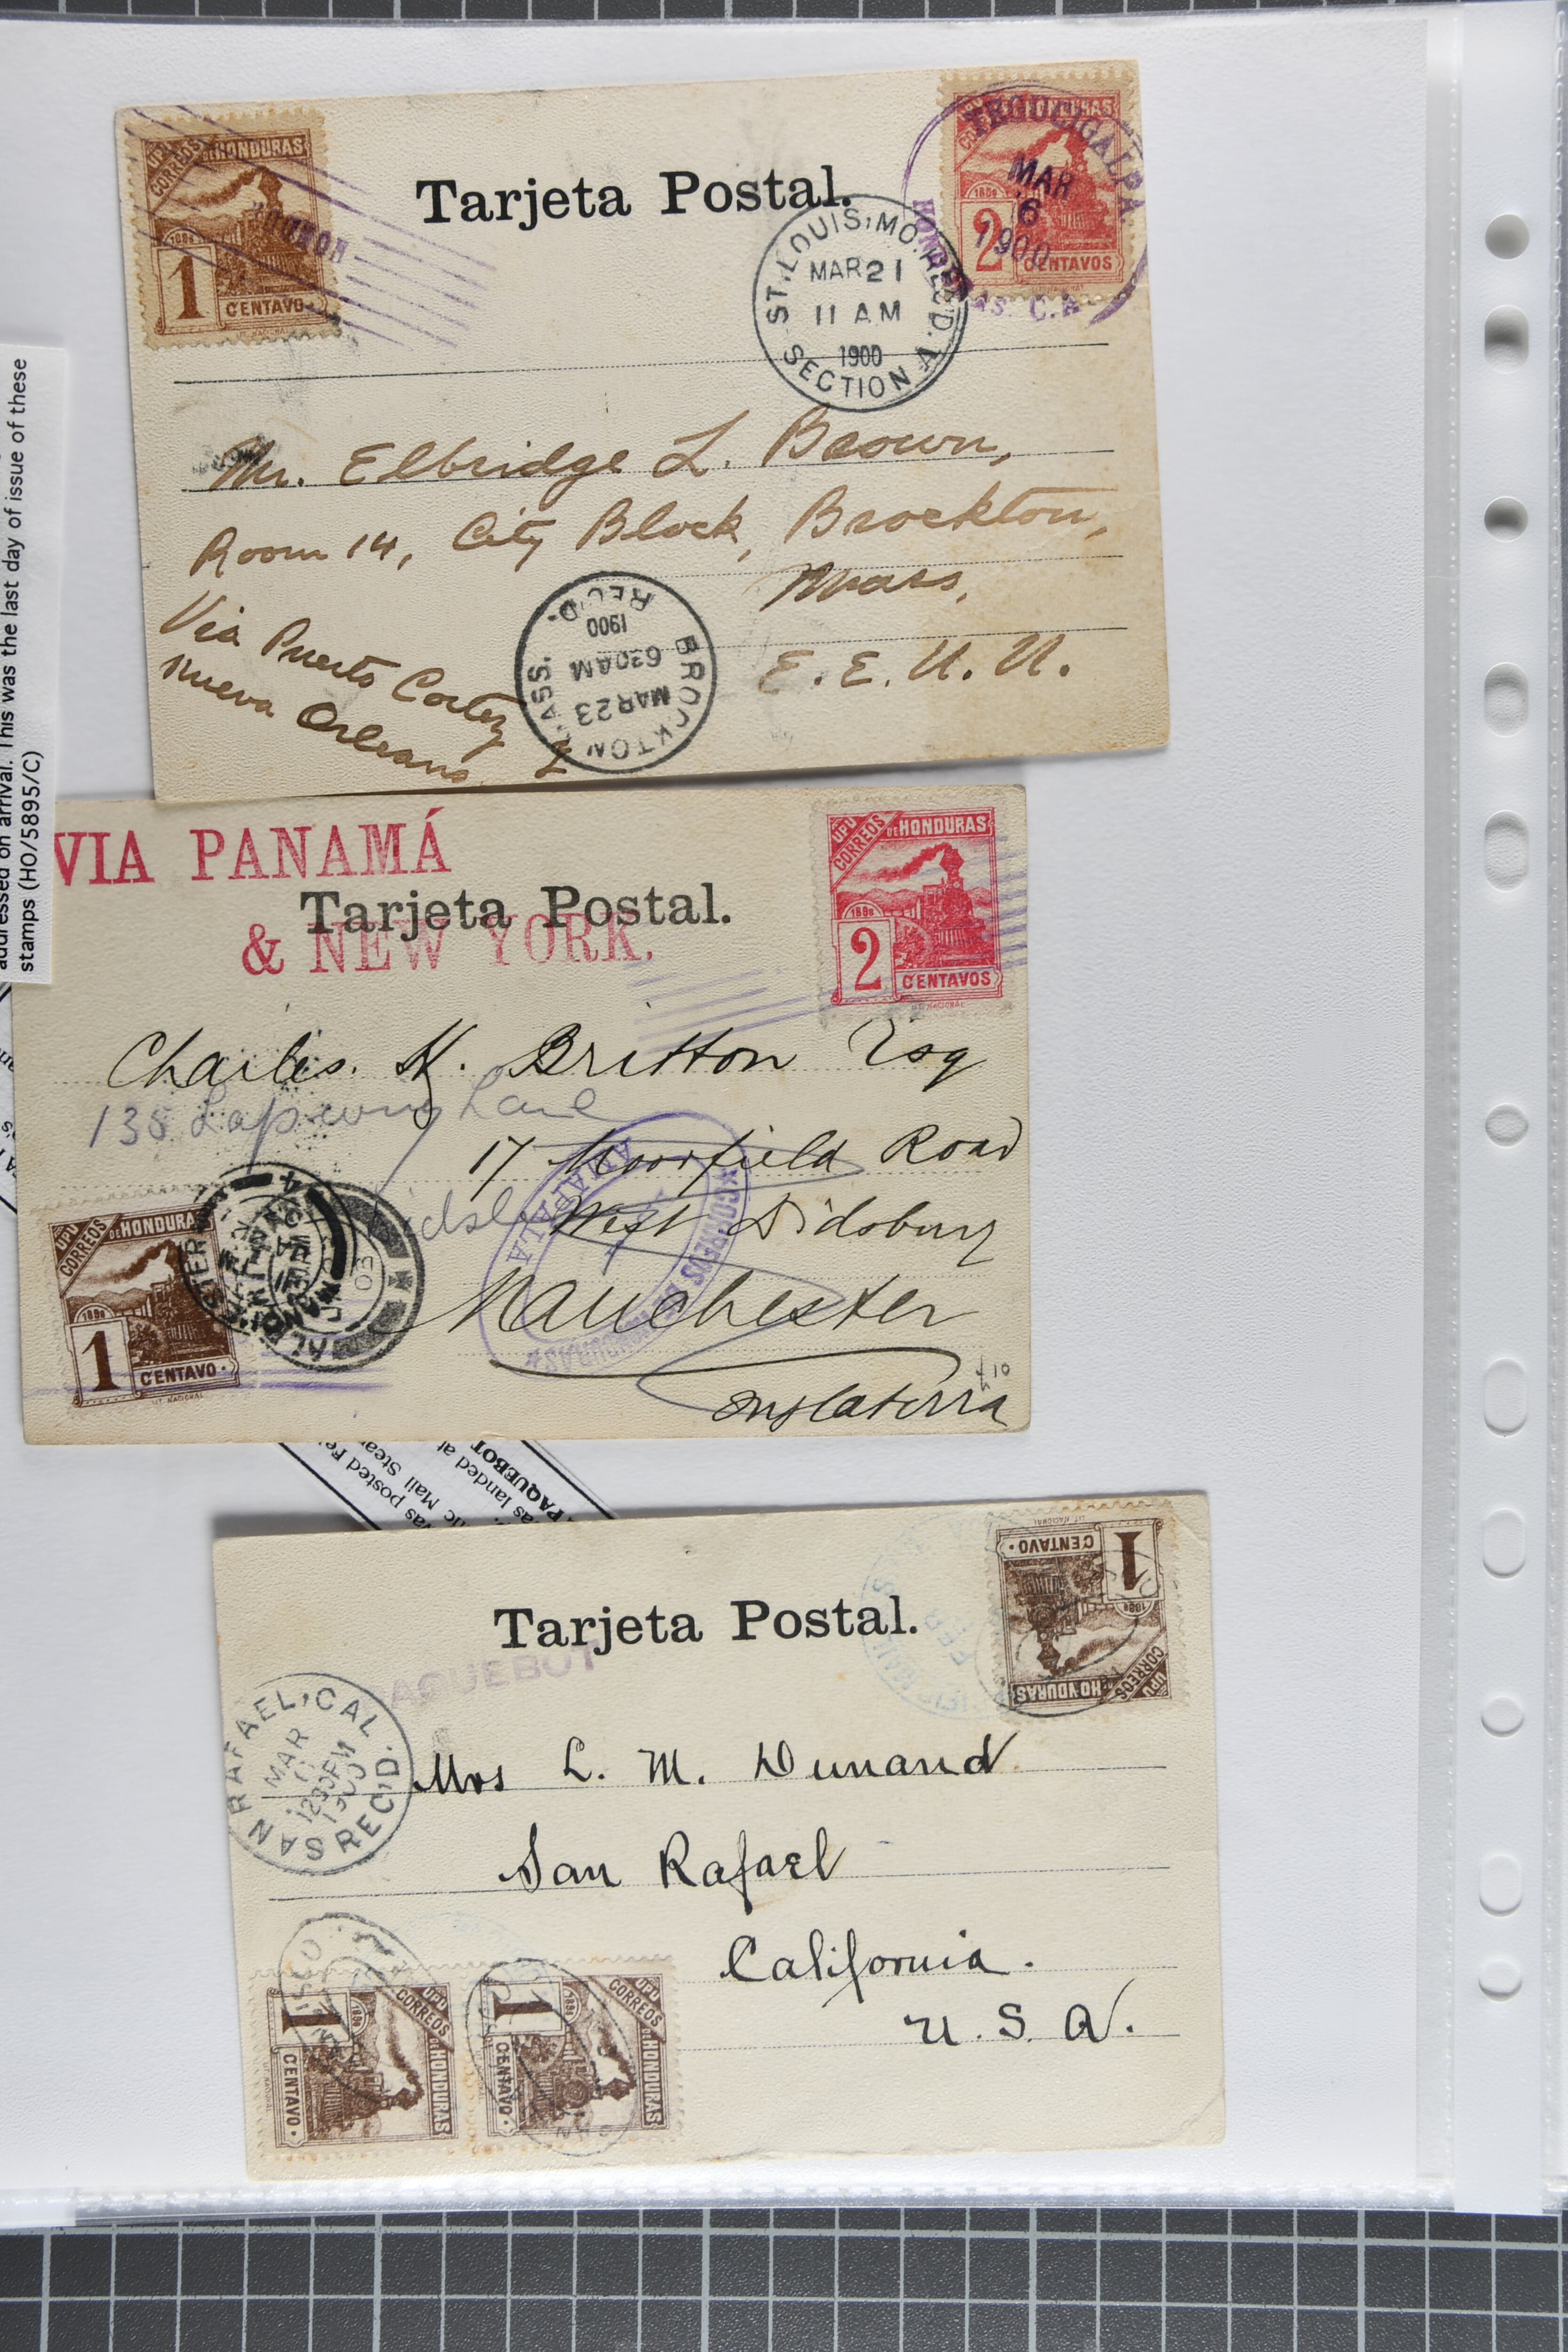 addressed on arrival. This was the last day of issue of these
stamps (HO/5895/C)
UPU
CORREOS
DE HONDURAS
1898
1
CENTAVO
Tarjeta Postal.
UPU
CORREOS
DE HONDURAS
1898
2
CENTAVOS
TEGUCIGALPA
MAR
6
1900
HONDURAS. C.A
ST. LOUIS, MO. REC'D.
MAR 21
11 AM
1900
SECTION
Mr. Elbridge L. Brown,
Room 14, City Block, Brockton,
Mass.
E. E. U. U.
Via Puerto Cortez
Nueva Orleans.
BROCKTON MASS.
MAR 23
630 AM
1900
REC'D.
VIA PANAMÁ
& NEW YORK.
Tarjeta Postal.
UPU
CORREOS
DE HONDURAS
1898
2
CENTAVOS
LIT. NACIONAL
Charles. H. Britton Esq
135 Lapwing Lane
17 Moorfield Road
West Didsbury
Manchester
Inglaterra
CORREOS DE HONDURAS
AMAPALA
UPU
CORREOS
DE HONDURAS
1898
1
CENTAVO
LIT. NACIONAL
was posted
Mail Stea
as landed at
PAQUEBOT
Tarjeta Postal.
PAQUEBOT
UPU
CORREOS
DE HONDURAS
1898
1
CENTAVO
LIT. NACIONAL
FEB
SAN RAFAEL, CAL
MAR
1230 PM
1900
REC'D.
Mrs L. M. Dunand
San Rafael
California.
U. S. A.
UPU
CORREOS
DE HONDURAS
1898
1
CENTAVO
UPU
CORREOS
DE HONDURAS
1898
1
CENTAVO